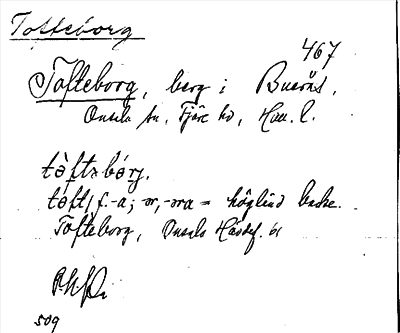 Tofteborg
467
Tofteborg, berg i Buerås,
Onsala sn, Fjäre hd, Hall. l.
tòftǝbórj.
tòft/ f. -a; -ǝr, -ǝra = högländ backe.
Tofteborg, Onsala
509